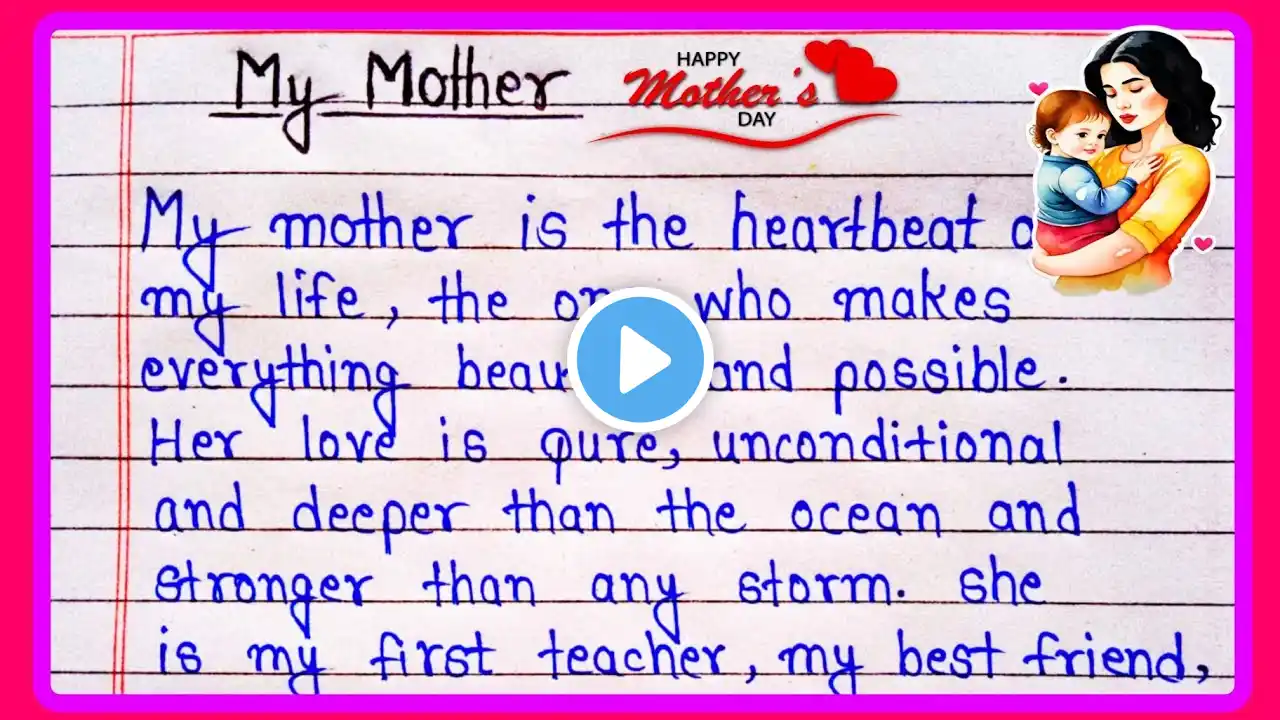 My Mother
HAPPY
Mother's
DAY
My mother is the heartbeat
my life, the who makes
everything and possible.
Her love is pure, unconditional
and deeper than the ocean and
stronger than any storm. She
is my first teacher, my best friend,